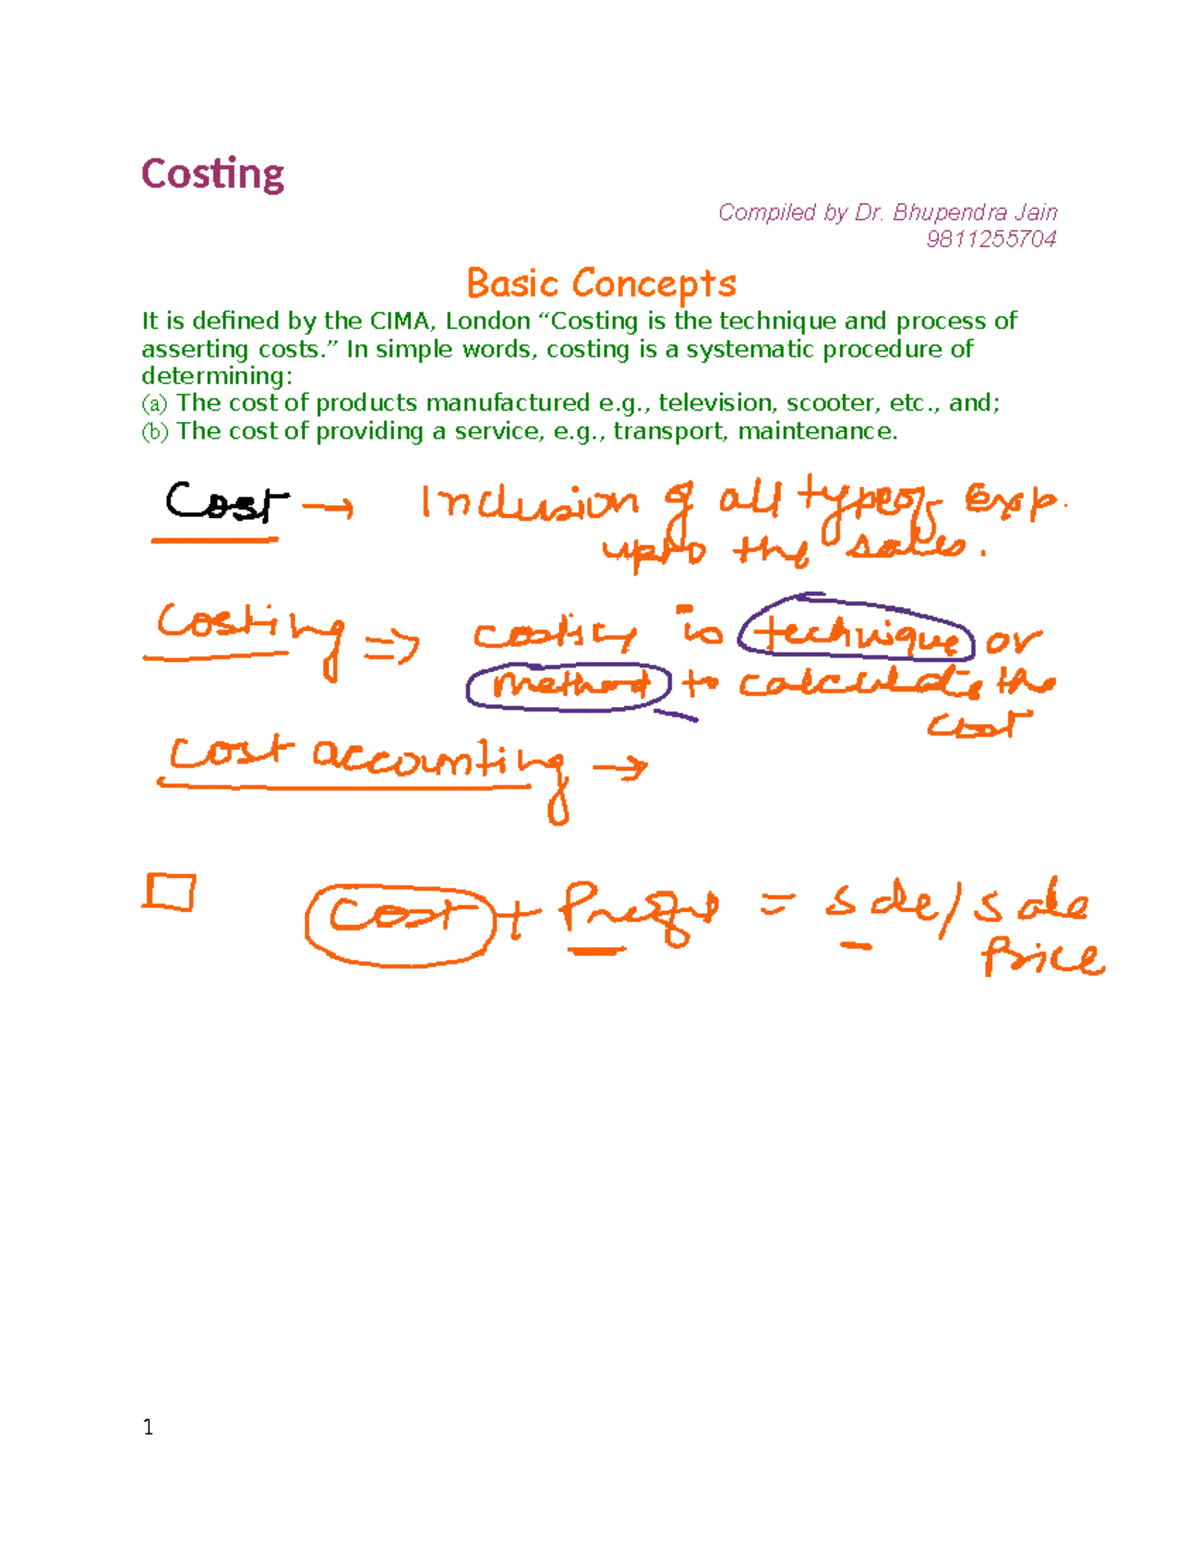 Costing
Compiled by Dr. Bhupendra Jain
9811255704
Basic Concepts
It is defined by the CIMA, London “Costing is the technique and process of
asserting costs.” In simple words, costing is a systematic procedure of
determining:
(a) The cost of products manufactured e.g., television, scooter, etc., and;
(b) The cost of providing a service, e.g., transport, maintenance.
Cost → Inclusion of all type of Exp.
upto the sales.
Costing ⇒ costing is technique or
method to calculate the
cost
Cost accounting →
Cost + Profit = sale/sale
Price
1